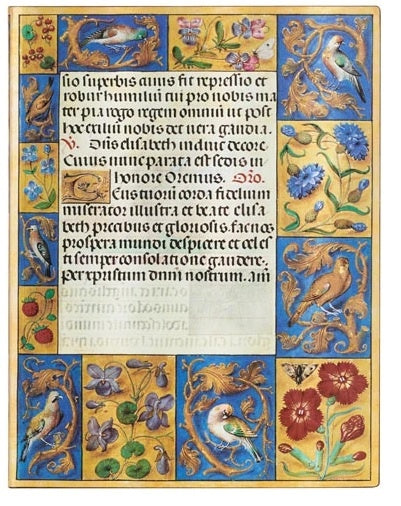 sio superbis cuius fit repressio et
robur humiliū cui pro nobis ma
ter pia rogo regem omniū ut post
hoc exiliū nobis det uera gaudia.
V. Dn̄s elisabeth induit decore.
Cuius nunc parata est sedis in
honore Oremus. Oro.
DEus tuorū corda fidelium
miserator illustra et beate elisa
beth precibus et gloriosis fac nos
prospera mundi despicere et celes
ti semper consolatione gaudere.
per xpristum dnm nostrum. am̄